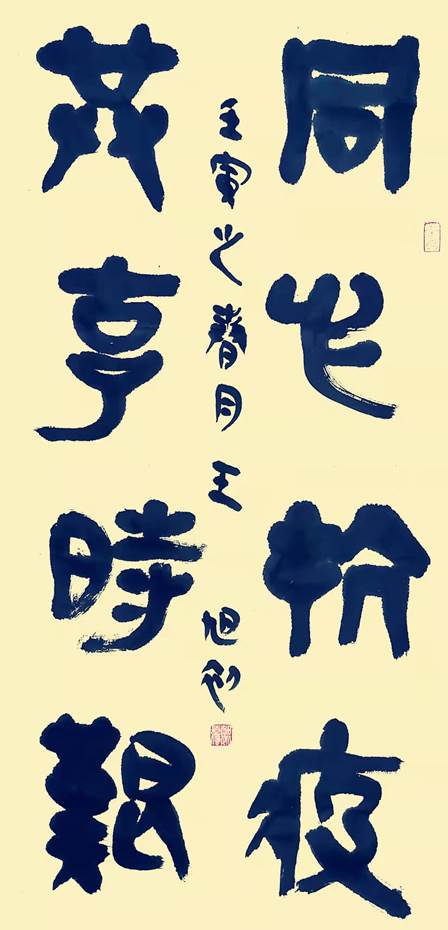 同心抗疫
共克時艱
壬寅之春月王旭初